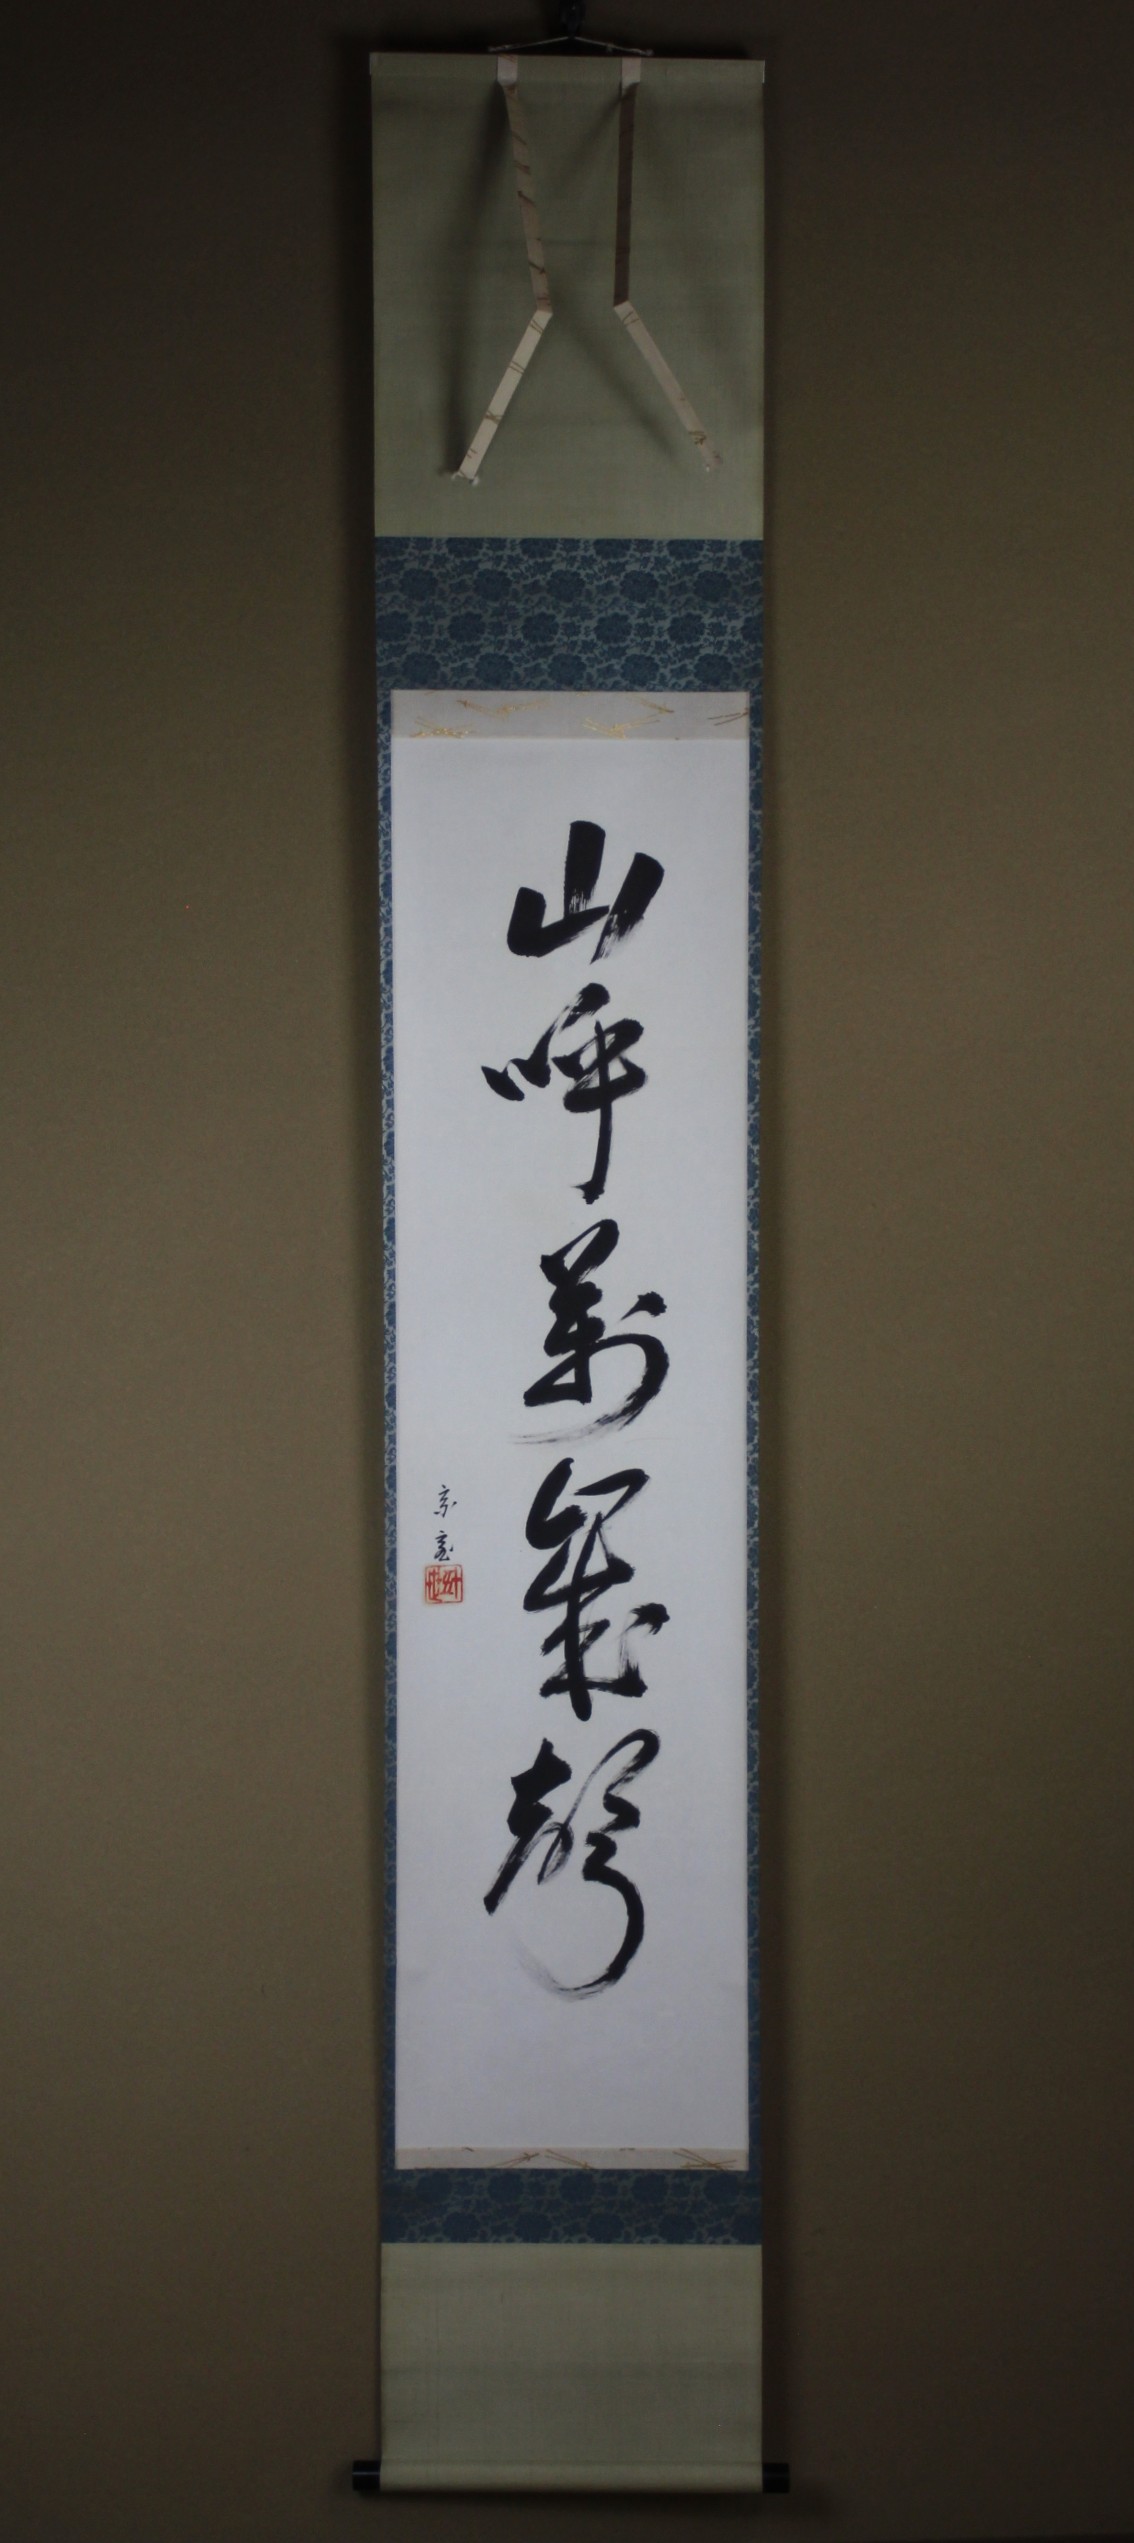 山呼萬歳聲
宗室